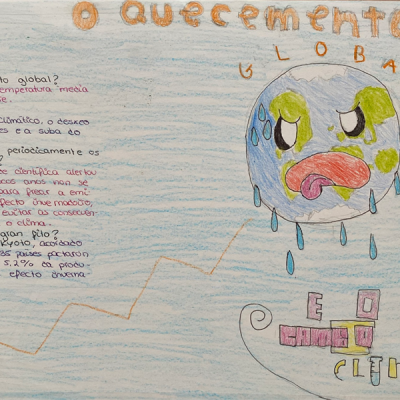 O QUECEMENTO
GLOBA
to global?
temperatura media
e.
climático, o desxeo
es e a suba do
periodicamente os
?
se científica alertou
cos anos non se
para frear a emi
efecto invernadoiro,
evitar as consecuen
o clima.
gran fito?
Kyoto, acordado
35 países pactaron
5,2% da produ-
efecto inverna-
E O
CAMBIO
CLIM